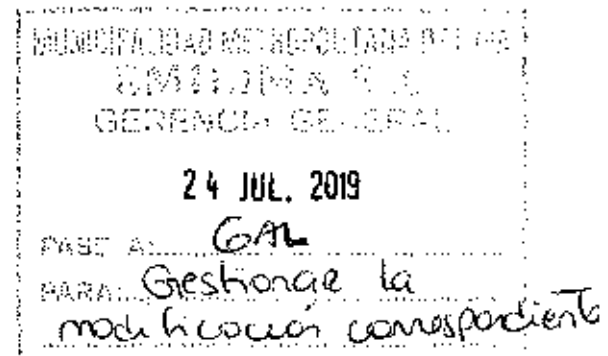 MUNICIPALIDAD METROPOLITANA DE LIMA
EMILIMA S.A.
GERENCIA GENERAL
24 JUL. 2019
PASE A: GAL
PARA: Gestionar la
modificación correspondiente